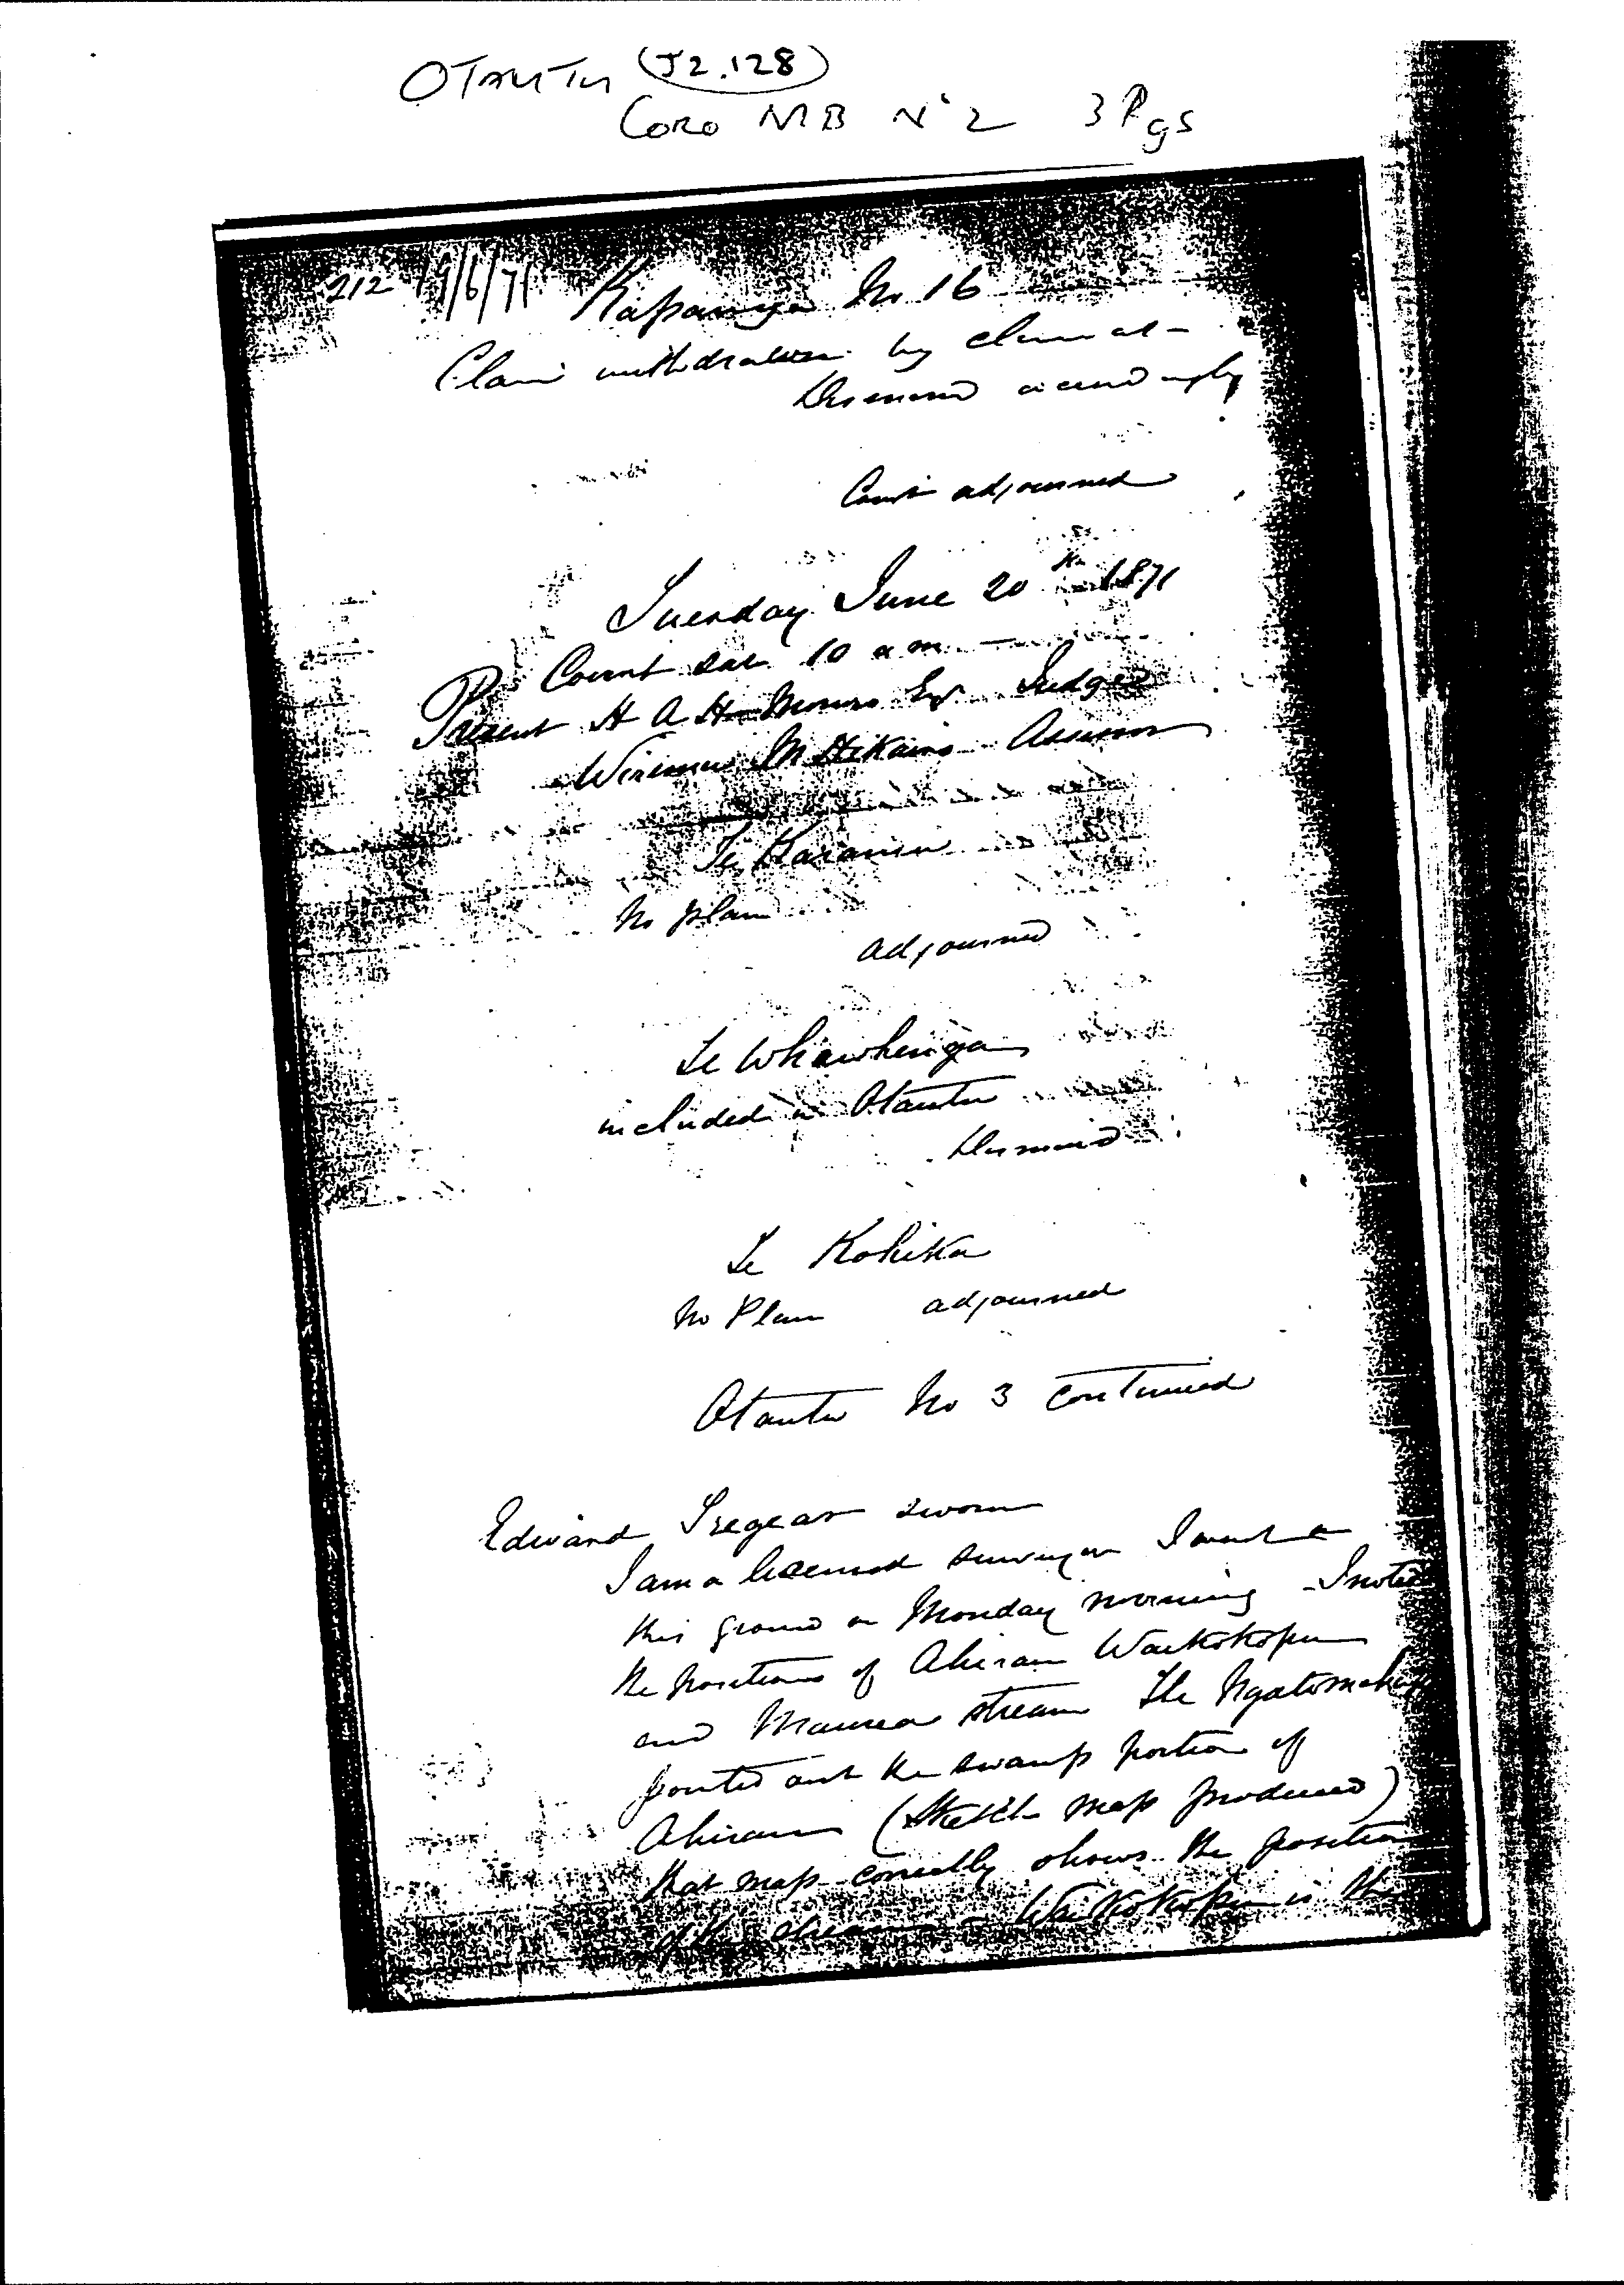 OTAUTU (J2.128)
Coro MB No 2 3 Pgs
212 19/6/71 Kapanga No 16
Claim withdrawn by claimant
Dismissed accordingly
Court adjourned
Tuesday June 20th 1871
Court sat 10 a m
Present H A H Monro Esq Judge
Wiremu Te Assessor
Te
No plan
adjourned
Te Whawhenga
included in Otautu
Dismissed
Te Kohika
No Plan adjourned
Otautu No 3 continued
Edward Tregear sworn
I am a licensed surveyor I went to
this ground on Monday morning I noted
the positions of Ahirau Waikokopu
and Maurea stream The Ngatimahu
pointed out the swamp portion of
Ahirau (Sketch map produced)
that map correctly shows the position
of the stream Waikokopu is the